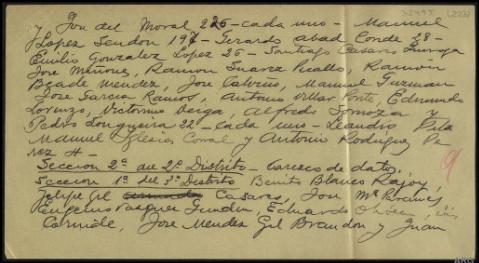 y Jose del Moral 226 - cada uno - Manuel
y Lopez Sendon 197 - Gerardo Abad Conde 28 -
Emilio Gonzalez Lopez 26 - Santiago Casares Quiroga
Jose Miñones, Ramon Suarez Picallo, Ramón
Beade Mendez, Jose Calviño, Manuel Guzman
Jose Garcia Ramos, Antonio Villar Ponte, Edmundo
Lorenzo, Victorino Veiga, Alfredo Somoza y
Pedro Longueira 22 - cada uno - Leandro Pita
Manuel Iglesias Corral y Antonio Rodriguez Pe
rez 4 -
Seccion 2ª del 2º Distrito - Carezco de datos.
Seccion 1ª del 3º Distrito Benito Blanco Rajoy,
Felipe Gil Casares, Jose Mª
Eugenio Vazquez Gundin, Eduardo
Cornide, Jose Mendez Gil Brandon y Juan